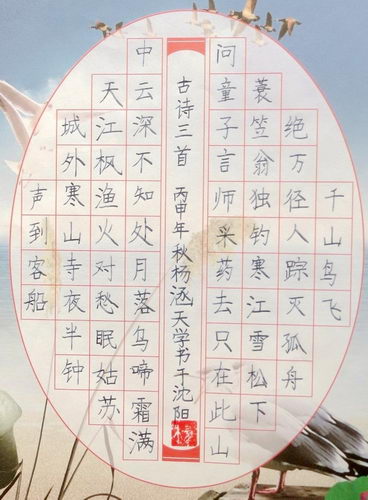 千山鸟飞
绝万径人踪灭孤舟
蓑笠翁独钓寒江雪松下
问童子言师采药去只在此山
古诗三首 丙申年秋杨涵天学书于沈阳
中云深不知处月落乌啼霜满
天江枫渔火对愁眠姑苏
城外寒山寺夜半钟
声到客船